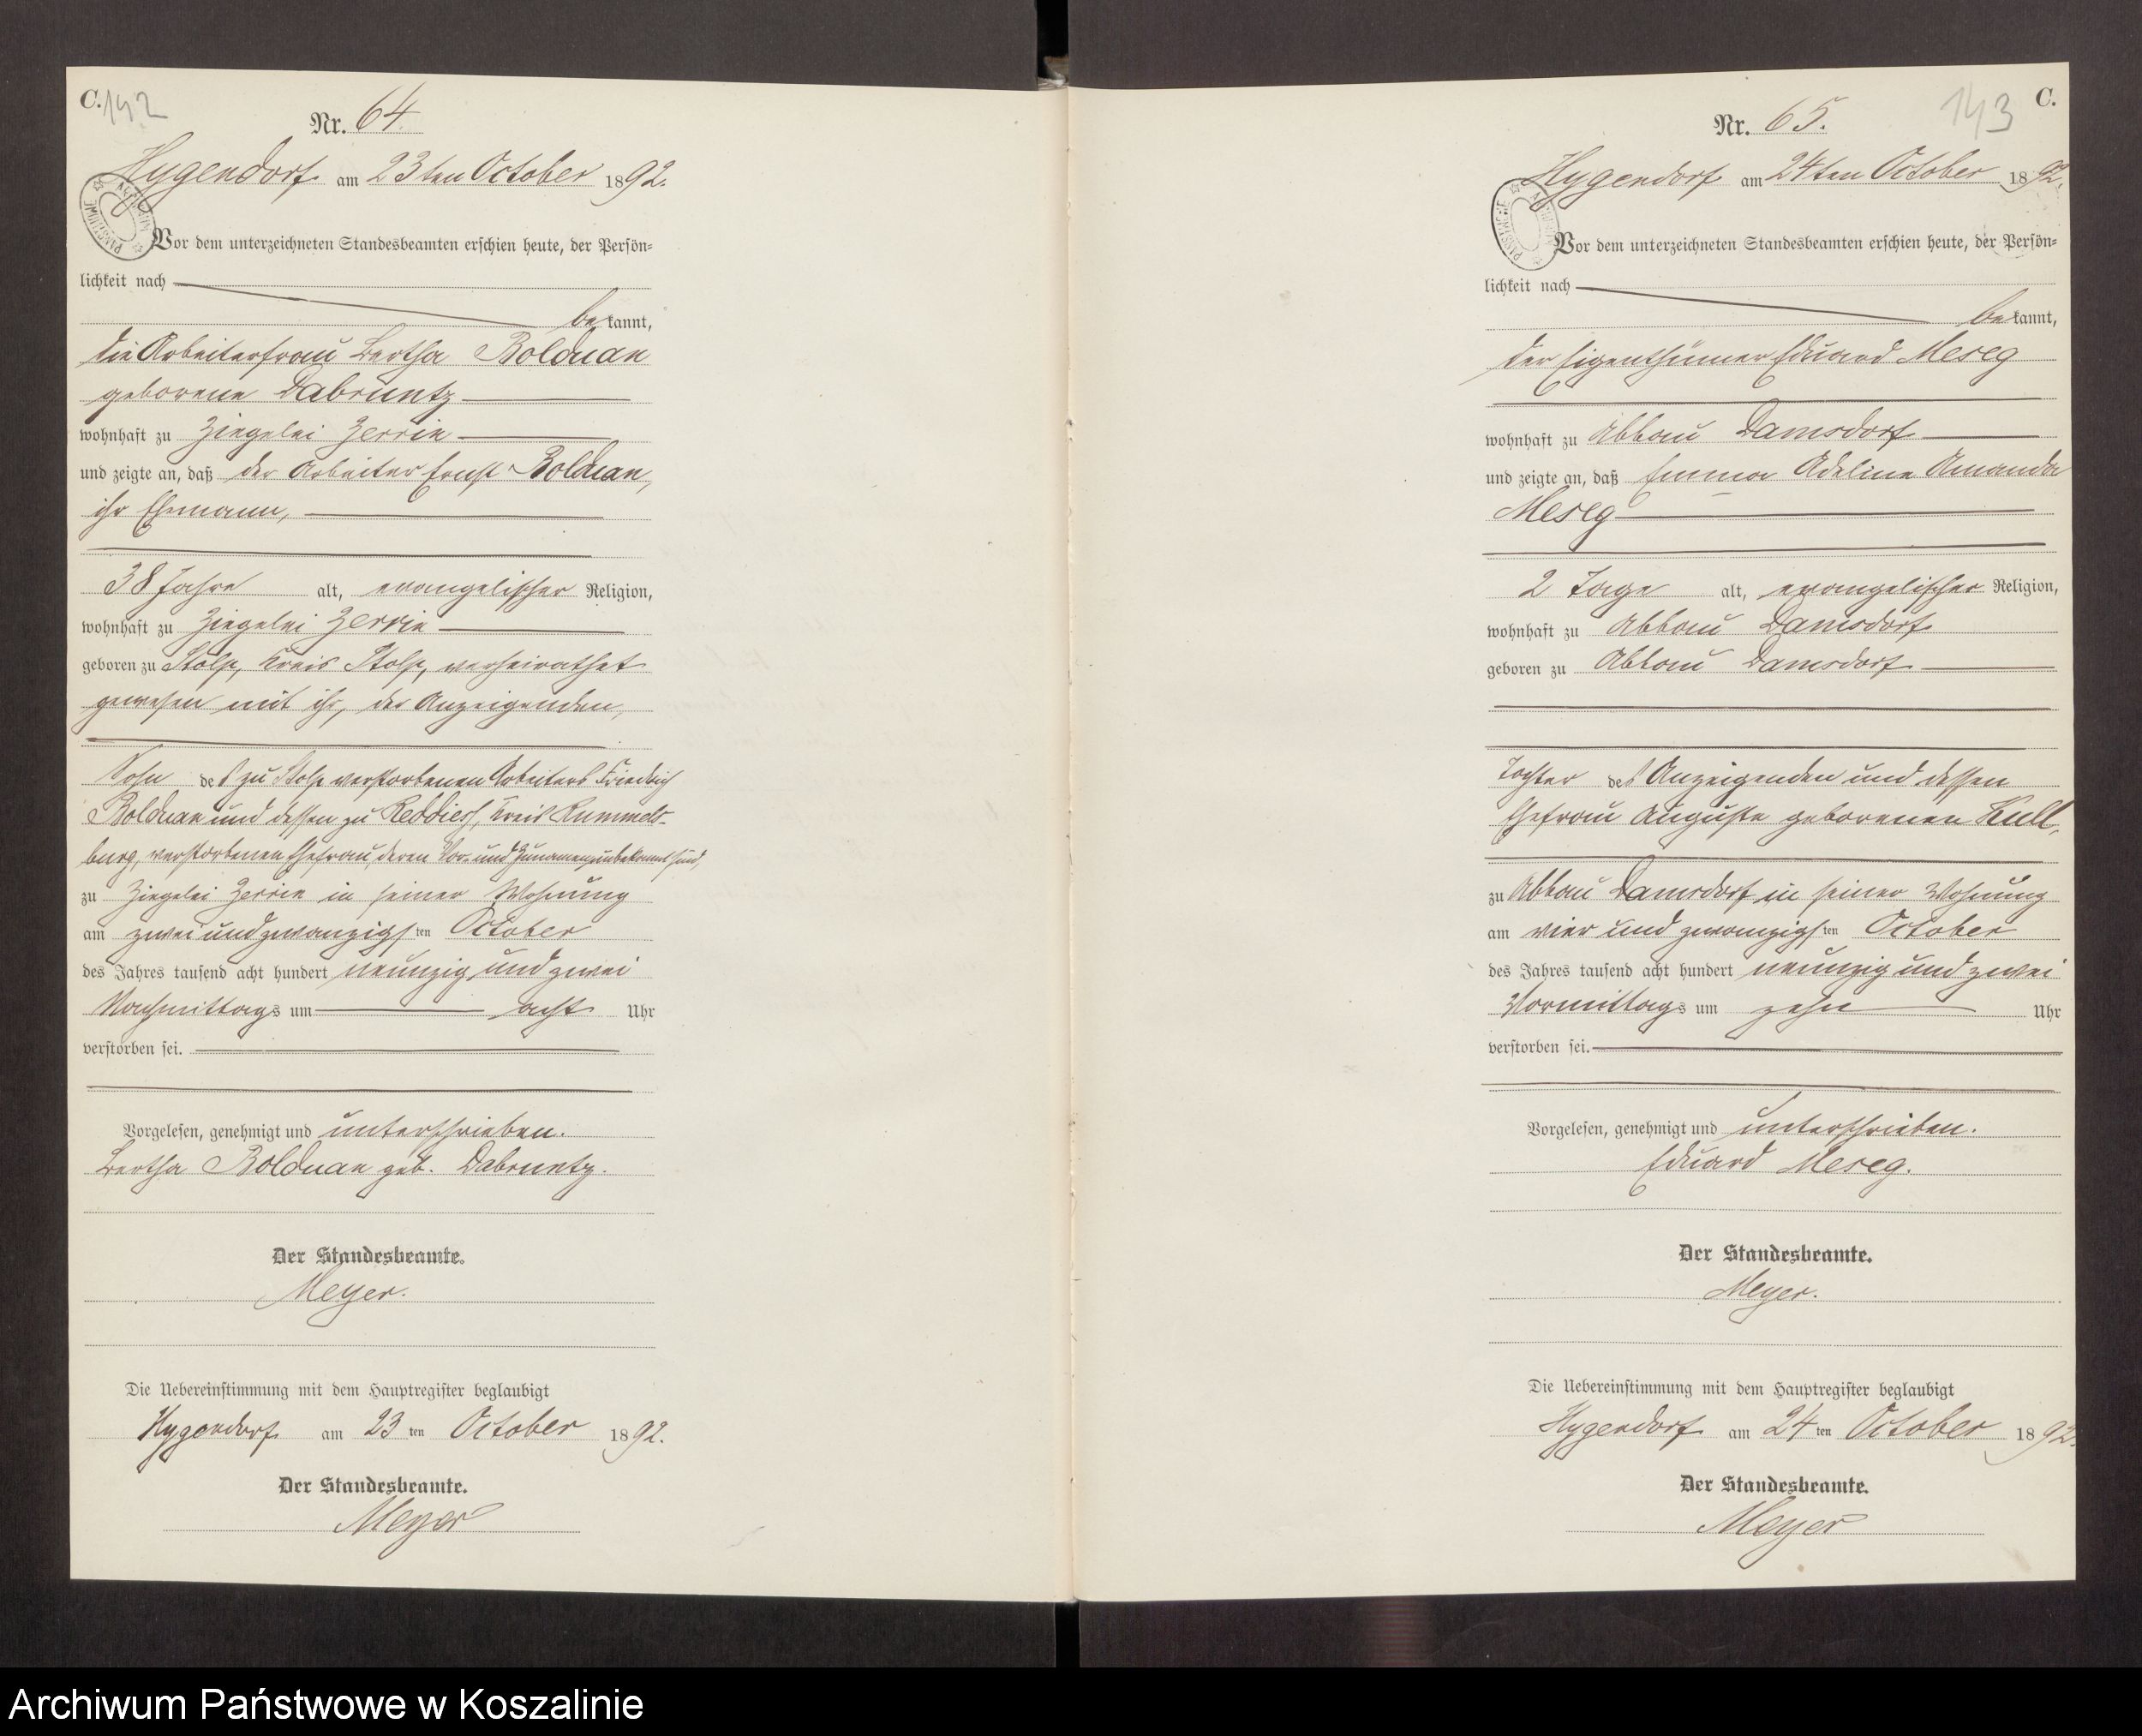 C. 142
Nr. 64.
Hygendorf am 23ten October 1892.
Vor dem unterzeichneten Standesbeamten erschien heute, der Persön=
lichkeit nach
bekannt,
die Arbeiterfrau Bertha Bolduan
geborene Dabruntz
wohnhaft zu Ziegelei Zerrin
und zeigte an, daß der Arbeiter Ernst Bolduan,
ihr Ehemann,
38 Jahre alt, evangelischer Religion,
wohnhaft zu Ziegelei Zerrin
geboren zu Stolp, Kreis Stolp, verheirathet
gewesen mit ihr, der Anzeigenden,
Sohn des zu Stolp verstorbenen Arbeiters Friedrich
Bolduan und dessen zu Reddies, Kreis Rummels-
burg, verstorbenen Ehefrau, deren Vor- und Zunamen unbekannt sind,
zu Ziegelei Zerrin in seiner Wohnung
am zwei und zwanzigsten October
des Jahres tausend acht hundert neunzig und zwei
Nachmittags um acht Uhr
verstorben sei.
Vorgelesen, genehmigt und unterschrieben.
Bertha Bolduan geb. Dabruntz.
Der Standesbeamte.
Meyer.
Die Uebereinstimmung mit dem Hauptregister beglaubigt
Hygendorf am 23ten October 1892.
Der Standesbeamte.
Meyer
143 C.
Nr. 65.
Hygendorf am 24ten October 1892.
Vor dem unterzeichneten Standesbeamten erschien heute, der Persön=
lichkeit nach
bekannt,
der Eigenthümer Eduard Meseg
wohnhaft zu Abbau Damsdorf
und zeigte an, daß Emma Adeline Amanda
Meseg
2 Tage alt, evangelischer Religion,
wohnhaft zu Abbau Damsdorf
geboren zu Abbau Damsdorf
Tochter des Anzeigenden und dessen
Ehefrau Auguste geborenen Kull,
zu Abbau Damsdorf in seiner Wohnung
am vier und zwanzigsten October
des Jahres tausend acht hundert neunzig und zwei
Vormittags um zehn Uhr
verstorben sei.
Vorgelesen, genehmigt und unterschrieben.
Eduard Meseg.
Der Standesbeamte.
Meyer.
Die Uebereinstimmung mit dem Hauptregister beglaubigt
Hygendorf am 24ten October 1892.
Der Standesbeamte.
Meyer
Archiwum Państwowe w Koszalinie